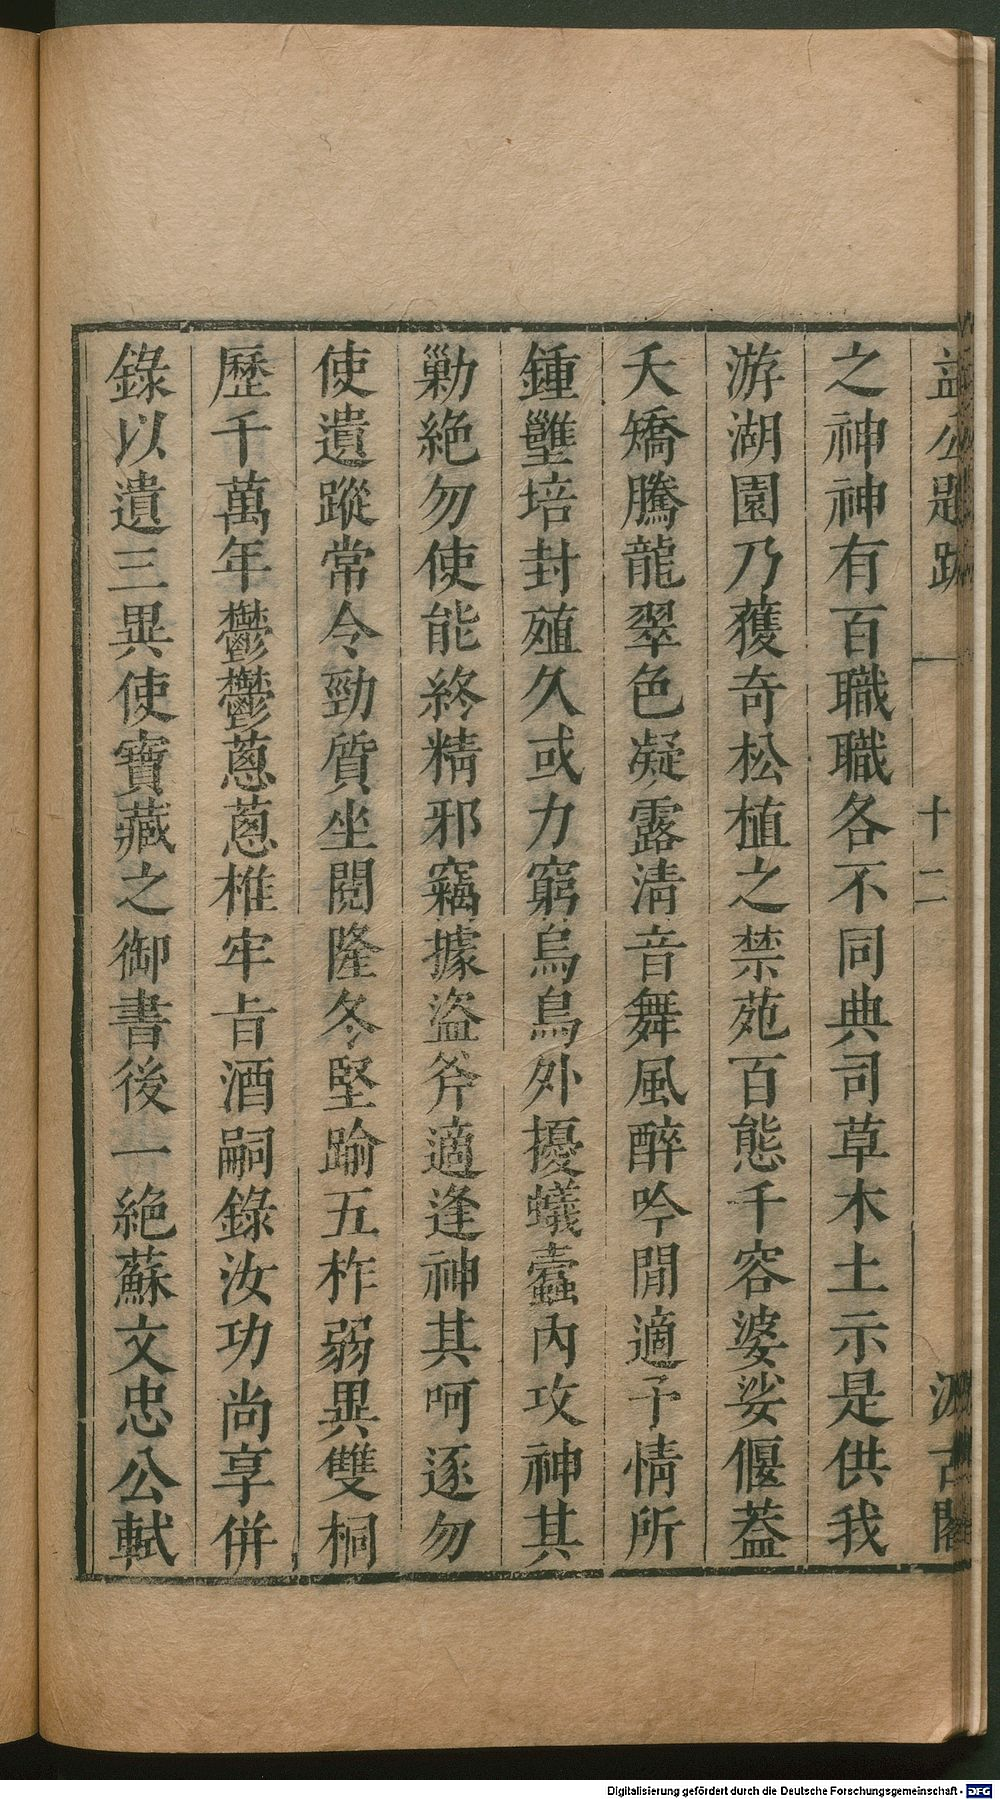 益公題跋 十二 汲古閣
之神神有百職職各不同典司草木土示是供我
游湖園乃獲奇松植之禁苑百態千容婆娑偃蓋
夭矯騰龍翠色凝露清音舞風醉吟閒適予情所
鍾壅培封殖久或力窮烏鳥外擾蟻蠹內攻神其
勦絶勿使能終精邪竊據盜斧適逢神其呵逐勿
使遺蹤常令勁質坐閱隆冬堅踰五柞弱異雙桐
歷千萬年鬱鬱蔥蔥椎牢旨酒嗣錄汝功尚享併
錄以遺三異使寶藏之御書後一絶蘇文忠公軾
Digitalisierung gefördert durch die Deutsche Forschungsgemeinschaft - DFG